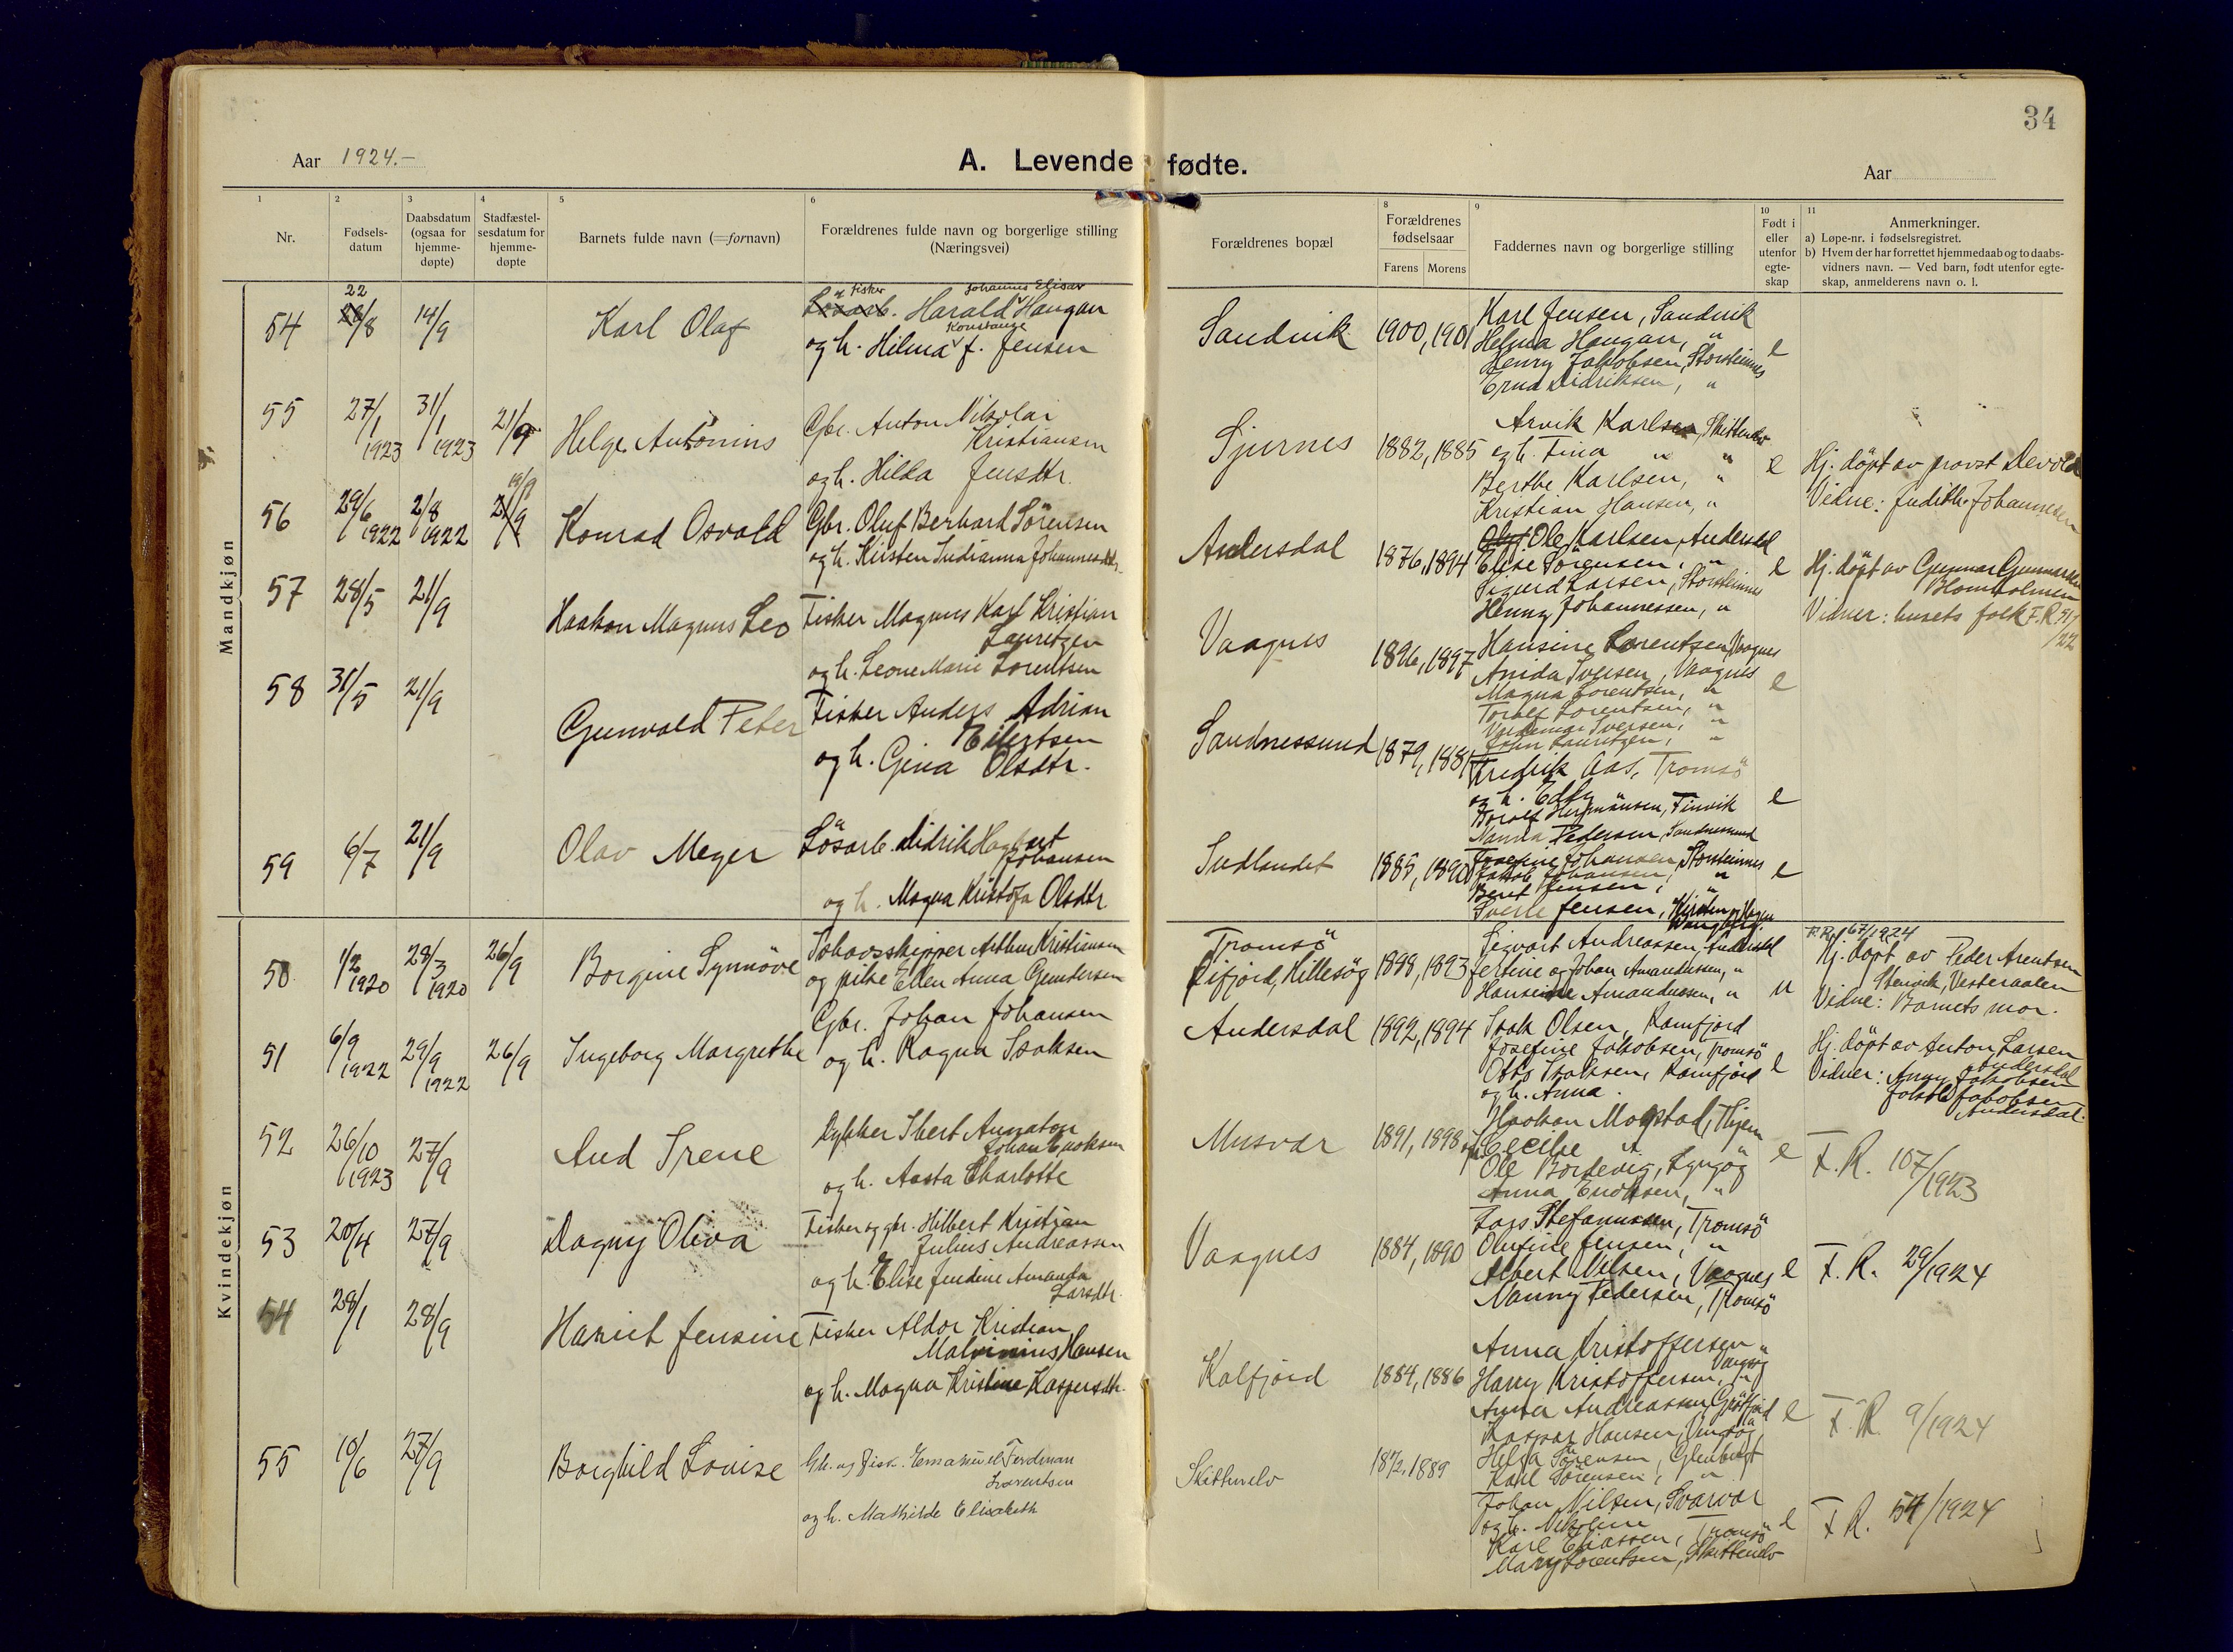 34
Aar 1924.-
A. Levende fødte.
Aar
1
2
3
4
5
6
8
9
10
11
Nr.
Fødsels-
datum
Daabsdatum
(ogsaa for
hjemme-
døpte)
Stadfæstel-
sesdatum for
hjemme-
døpte
Barnets fulde navn (=fornavn)
Forældrenes fulde navn og borgerlige stilling
(Næringsvei)
Forældrenes bopæl
Forældrenes
fødselsaar
Farens
Morens
Faddernes navn og borgerlige stilling
Født i
eller
utenfor
egte-
skap
Anmerkninger.
a) Løpe-nr. i fødselsregistret.
b) Hvem der har forrettet hjemmedaab og to daabs-
vidners navn. — Ved barn, født utenfor egte-
skap, anmelderens navn o. l.
Mandkjøn
54 22/8 14/9 Karl Olaf
Fisker Harald Johannes Elisar Haugan
og h. Hilma Konstanse f. Jensen
Sandvik 1900, 1901
Karl Jensen, Sandvik
Helma Haugan, "
Henry Jakobsen, Storsteinnes
Erna Didriksen, "
e
55 27/1 1923 31/1 1923 21/9 Helge Antonius
Gbr. Anton Nikolai
Kristiansen
og h. Hilda Jensdtr.
Sjurnes 1882, 1885
Arvik Karlsen, Skittenelv
og h. Tina " "
Berthe Karlsen, "
Kristian Hansen, "
e
Hj. döpt av provst Devold
Vidne: Judith Johannesen
56 29/6 1922 2/8 1922 19/9 21/9 Konrad Osvald
Gbr. Oluf Berhard Sörensen
og h. Kirsten Indianna Johannesdtr.
Andersdal 1876, 1894
Ole Karlsen, Andersdal
Elise Sörensen, "
Sigurd Larsen, Storsteinnes
Henny Johannessen, "
e
Hj. döpt av Gunnar Gunnarsen
Blomholmen
Vidner: husets folk F.R 51/22
57 28/5 21/9 Haakon Magnus Leo
Fisker Magnus Karl Kristian
Lauritzen
og h. Leone Marie Lorentsen
Vaagnes 1896, 1897
Hansine Lorentsen, Vaagnes
Anida Iversen, Vaagnes
Magna Lorentsen, "
Toralf Lorentsen, "
Valdemar Iversen, "
John Lauritzen, "
e
58 31/5 21/9 Gunvald Peter
Fisker Anders Adrian
Eilertsen
og h. Gina Olsdtr.
Sandnessund 1879, 1881
Fredrik Aas, Tromsö
og h. Edly
Toralf Hermansen, Finvik
Nanna Pedersen, Sandnessund
e
59 6/7 21/9 Olav Meyer
Lösarb. Didrik Hagbart
Johansen
og h. Magna Kristofa Olsdtr
Indlandet 1885, 1890
Josefine Johansen, Storsteinnes
Jakob Johansen, "
Beret Jensen, "
Sverle Jensen,
e
Kvindekjøn
50 1/2 1920 28/3 1920 26/9 Borgine Synnöve
Arthur Kristiansen
og pike Ellen Anna Gundersen
Tromsö
Eifjord, Hillesöy 1898, 1893
Sigvart Andreassen, Andersdal
Jertine og Johan Amandussen, "
Hansine Amandussen, "
u
F.R. 67/1924
Hj. döpt av Peder Arentsen
Steinvik, Vesteraalen
Vidne: Barnets mor.
51 6/9 1922 29/9 1922 26/9 Ingeborg Margrethe
Gbr. Johan Johansen
og h. Ragna Isaksen
Andersdal 1892, 1894
Isak Olsen, Ramfjord
Josefine Jakobsen, Tromsö
Otto Isaksen, Ramfjord
og h. Anna.
e
Hj. döpt av Anton Larsen
Andersdal
Vidner: Anny Jakobsen
Jakob Jakobsen
Andersdal.
52 26/10 1923 27/9 Aud Irene
Dykker Ibert Annaton
Johan Enoksen
og h. Aasta Charlotte
Musvær 1891, 1898
Haakon Mogstad, Thjem
og h. Cecilie "
Ole Bordevig, Lyngöy
Anna Enoksen, "
e
F.R. 107/1923
53 20/4 27/9 Dagny Oliva
Fisker og gbr. Hilbert Kristian
Julius Andreassen
og h. Elise Jendine Amanda
Larsdtr.
Vaagnes 1884, 1890
Lars Stefanussen, Tromsö
Olufine Jensen, "
Albert Nilsen, Vaagnes
Nanny Pedersen, Tromsö
e
F.R. 29/1924
54 28/1 28/9 Hariet Jensine
Fisker Aldor Kristian
Malvinius Hansen
og h. Magna Kristine Kaspersdtr.
Kalfjord 1884, 1886
Anna Kristoffersen "
Vengsöy
Harry Kristoffersen, "
Anna Andreassen, Grötfjord
Kaspar Hansen, Vengsöy
e
F.R. 9/1924
55 10/6 27/9 Borghild Lovise
Gb. og fisk. Emanuel Ferdinan
Lorentsen
og h. Mathilde Elisabeth
Skittenelv 1872, 1889
Helga Sörensen,
Karl Sörensen, "
Johan Nilsen, Svarvar
og h. Nikoline
Karl Eliassen, Tromsö
Mary Lorentsen, Skittenelv
e
F.R. 54/1924